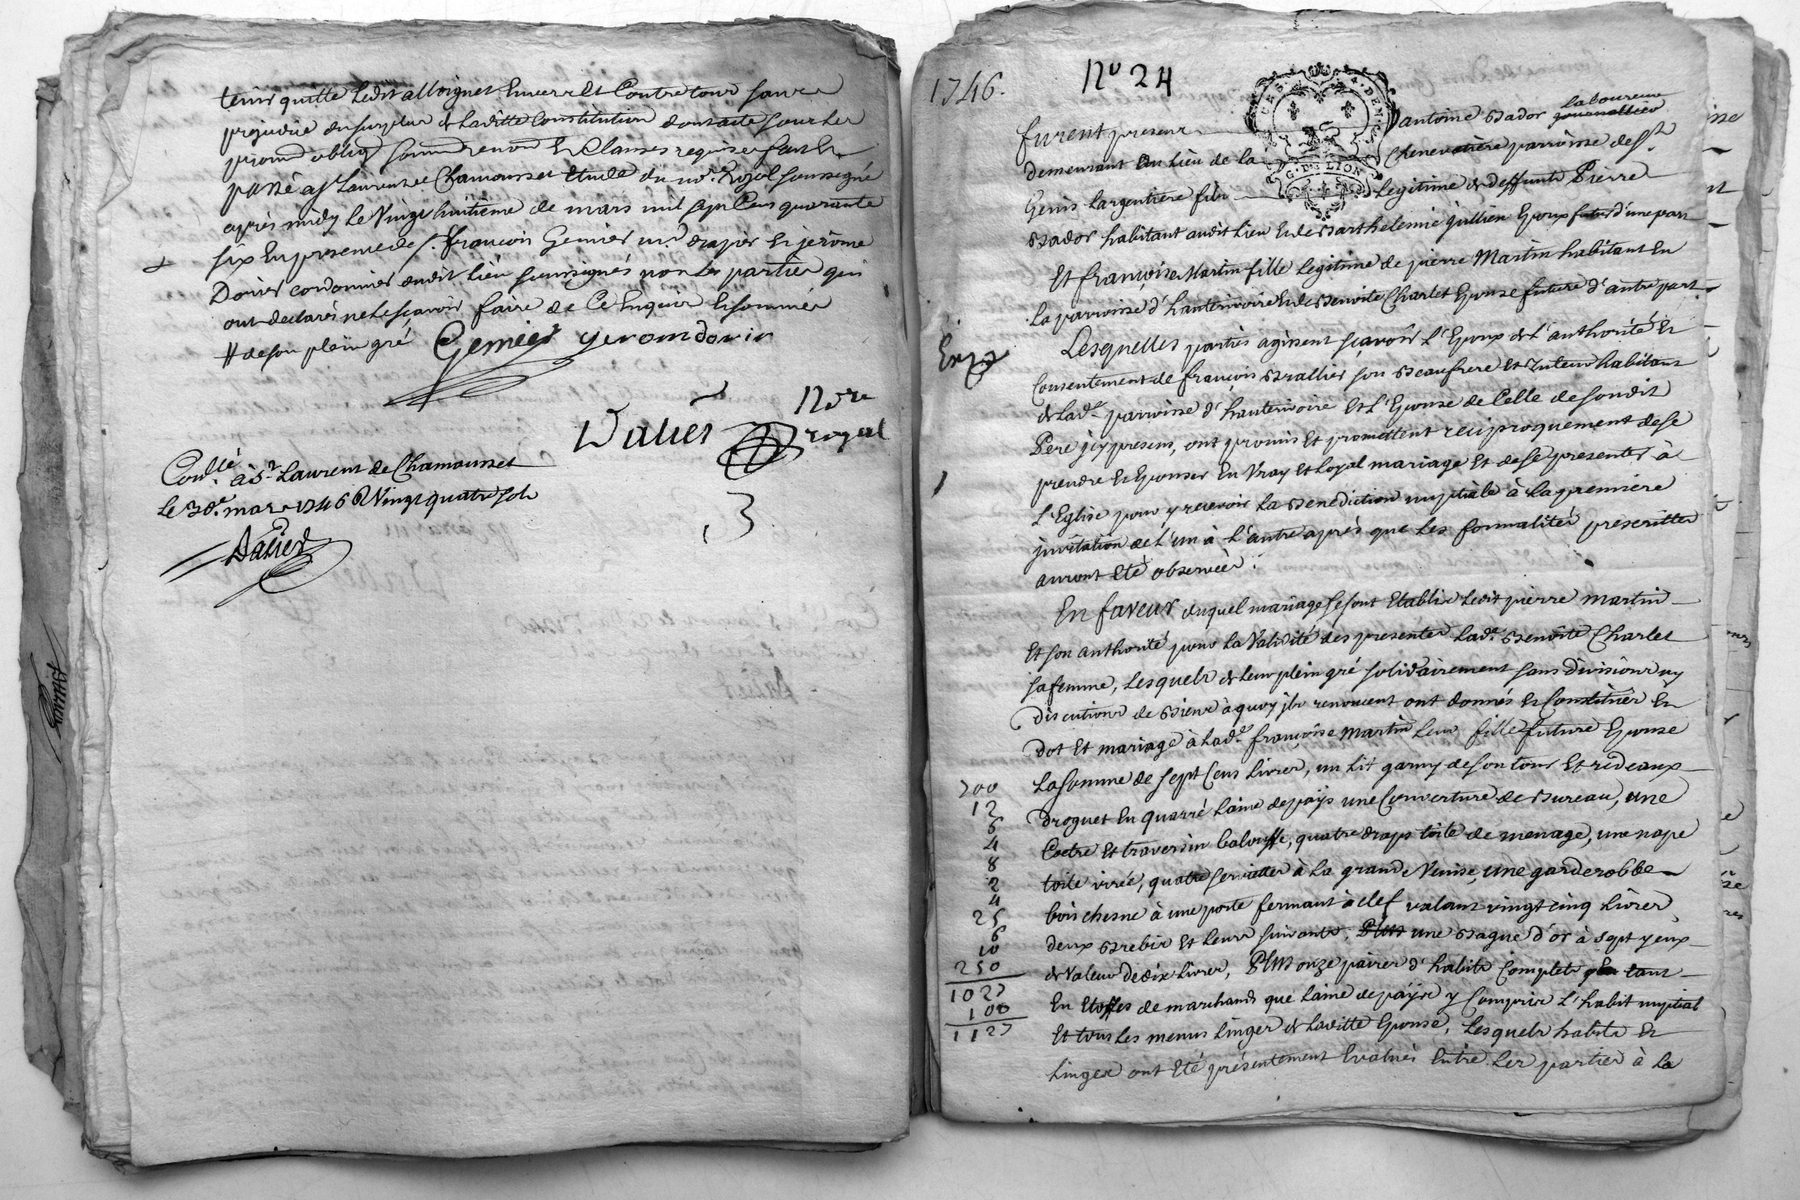 tenir quitte ledit alloignet Envers Et Contre tous sans
prejudice du surplus de laditte Constitution
promd oblig soumd renond Et Clauses requises fait Et
passé a St Laurent de Chamousset Etude du no.re Royal soussigné
après midy le Vingt huitième de mars mil sept Cens quarante
six En presence de Sr. françois Gemier md. drapier Et jerôme
Dorier cordonnier dudit lieu soussignés non les parties qui
ont declarés ne le sçavoir faire de Ce Enquis Et sommés
# de son plein gré Gemier yeromdorir
Dalier Nore
royal
Conllé à St. Laurent de Chamousset
le 30e. mars 1746 R Vingt quatre sols
Dalier
3
1746. No 24
GNALITE DE LION
laboureur
furent presens antoine Bador journallier
demeurant Au lieu de la Chenevatière parroisse de St.
Genis Largentière fils Legitime de deffunt Pierre
Bador habitant audit lieu Et de Barthelemie jullien Epoux futur d'une part
Et françoise Martin fille Legitime de pierre Martin habitant En
la parroisse d'hauterivoire Et de Benoite Charlet Epouse future d'autre part
Lesquelles parties agissent sçavoir L'Epoux de L'authorité Et
Consentement de françois Brallier son Beaufrere Et Tuteur habitant
de lade. parroisse d'hauterivoire Et L'Epouse de Celle de sondit
Pere jcy present, ont promis Et promettent reciproquement de se
prendre Et Epouser En Vray Et Loyal mariage Et de se presenter à
L'Eglise pour y recevoir la Benediction nuptiale à la premiere
jnvitation de L'un à L'autre après que les formalités prescrittes
auront Eté observées.
En faveur duquel mariage se sont Etablis ledit pierre martin
Et son authorité pour la Validité des presentes lade. Benoite Charlet
sa femme, Lesquels de leur plein gré solidairement sans division ny
discution de Biens à quoy jls renoncent ont donnés Et Constitués En
dot Et mariage à lade. françoise Martin leur fille future Epouse
700 la somme de sept Cens livres, un lit garny de son tour Et rideaux
12 droguet En quarré laine de païs une Couverture de Bureau, une
6
4 Coetre Et traversin balouffe, quatre draps toile de menage, une nape
8
2 toile virée, quatre serviettes à la grande Venise, une garderobbe
4
25 bois chesne à une porte fermant à clef valant vingt cinq livres
6 deux Brebis Et leurs suivants, Plus une Bague d'or à sept yeux
10
250 de Valeur de dix livres, Plus onze paires d'habits Complets tant
1027 En Etoffes de marchands que laine de païs y Compris L'habit nuptial
100
1127 Et tous les menus linges de laditte Epouse, Lesquels habits Et
linges ont Eté présentement Evalués Entre Les parties à la